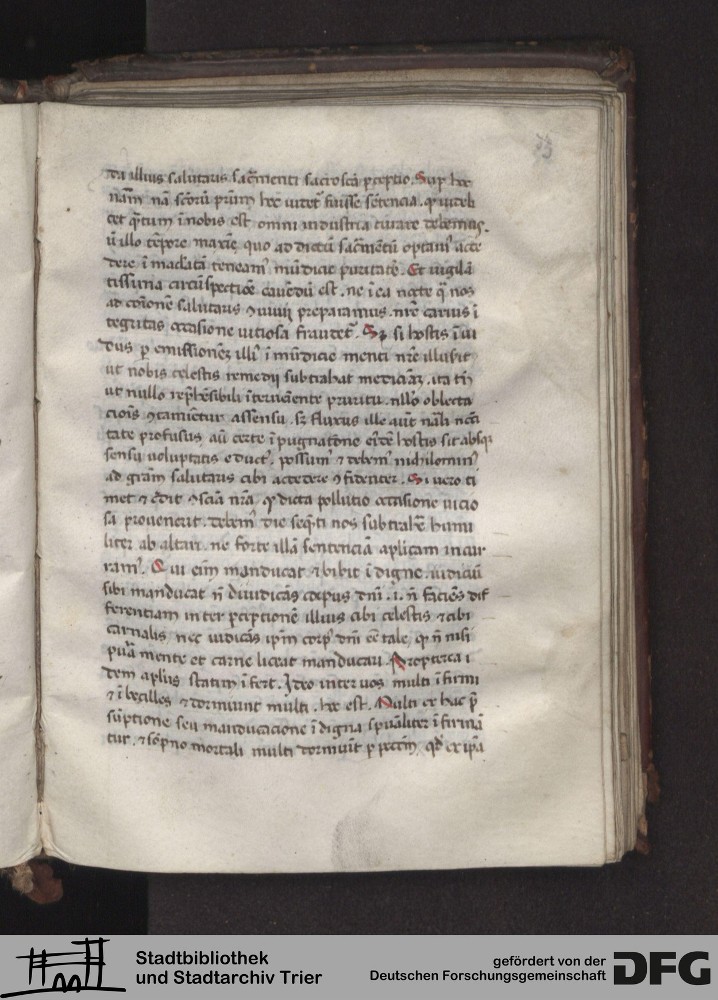 33
da illius salutaris sac̄menti sacroscā p̄ceptio. Sup̄ hac
nām nā sēorū prīm hec videt᷑ fuisse sētencia. qꝫ videli
cet qᷓtum ī nobis est omni industria curare debemus.
ū illo tēpore maxīe quo ad dictū sac̄mētū optam᷑ acce
dere ī maclatā teneam᷑ mūdicie puritatē. Et vigilā
tissima circūspectiōe cauēdū est. ne ī ea nocte qᷓ nos
ad cōionē salutaris ꝯuiuii preparamus. nr̄e carnis ī
tegritas occasione viciosa fraudet᷑. Sꝫ si hostis īui
dus ꝑ emissionēꝫ illī ī mūdicie menti nr̄e illusit
ut nobis celestis remedii subtrahat medicināꝫ. ita tn̄
ut nullo rep̄hēsibili īterueniente pruritu. nllō oblecta
cionis ꝯtamīetur assensu. sꝫ fluxus ille aut nāli ncc̄i
tate profusus aū certe īpugnatōne eīdē hostis sit absqꝫ
sensu voluptatis educt᷑. possum᷑ ⁊ debem᷑ nichilomin᷑
ad grām salutaris cibi accedere ꝯfidenter. Si uero ti
met ⁊ cōdit ꝯsciā nr̄a qꝫ dicta pollutio occasione vicio
sa prouenerit. debem᷑ die seqᷓti nos subtrahē humi
liter ab altari. ne forte illā sentenciā aplicam incur
ram᷑. Qui eīm manducat ⁊ bibit īdigne. iudiciū
sibi manducat n̄ diiudicās corpus dnī. i. n̄ faciēs dif
ferentiam inter ꝑceptionē illius cibi celestis ⁊ cibi
carnalis nec iudicās ip̄m corp᷑ dnī eē tale, qꝫ n̄ nisi
pura mente et carne liceat manducari. Propterea i
dem aplūs statim īfert. Ideo inter uos multi īfirmi
⁊ ībecilles ⁊ dormiunt multi. hoc est. Multi ex hac p̄
sūptione seu manducacione īdigna spūaliter īfirmā
tur. ⁊ sōpno mortali multi dormiūt ꝑ pccm̄, qꝫ ex ip̄a
Stadtbibliothek
und Stadtarchiv Trier
gefördert von der
Deutschen Forschungsgemeinschaft
DFG